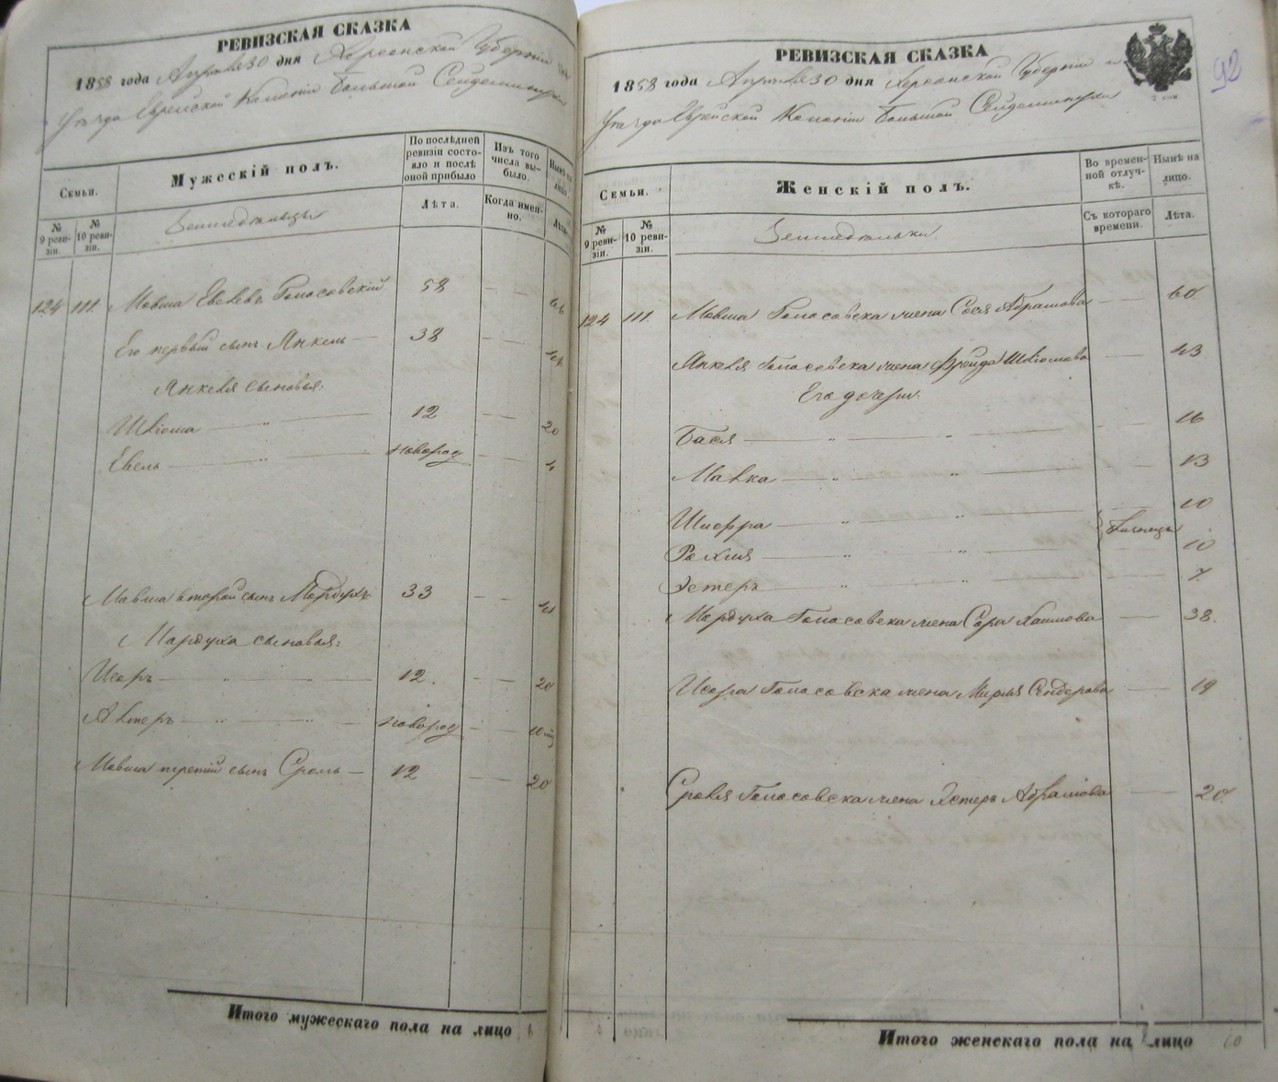 РЕВИЗСКАЯ СКАЗКА
1858 года Апреля 30 дня Херсонской Губерніи
Уѣзда Еврейской Колоніи Большой Сейдеминухи
Семьи.
Мужескій полъ.
По послѣдней ревизіи состояло и послѣ оной прибыло
Изъ того числа выбыло.
Нынѣ на лицо.
№ 9 ревизіи.
№ 10 ревизіи.
Земледѣльцы
Лѣта.
Когда именно.
Лѣта.
124 111. Мовша Евелевъ Голосовскій 58
Его первый сынъ Янкель 38
Янкеля сыновья:
Шліома 12 20
Евель новород 4
Мовша второй сынъ Мордухъ 33
Мордуха сыновья:
Исеръ 12. 20
Алтеръ новорож 10
Мовша третій сынъ Сроль 12 20
Итого мужескаго пола на лицо
РЕВИЗСКАЯ СКАЗКА
92
1858 года Апреля 30 дня Херсонской Губерніи и
Уѣзда Еврейской Колоніи Большой Сейдеминухи
Семьи.
Женскій полъ.
Во временной отлучкѣ.
Нынѣ на лицо.
№ 9 ревизіи.
№ 10 ревизіи.
Земледѣльки
Съ котораго времени.
Лѣта.
124 111. Мовша Голосовска жена Сося Абрамова 60
Янкеля Голосовска жена Фрейда Шліомова 43
Его дочери:
Бася 16
Малка 13
Шифра 10
Рахля 10
Эстеръ 7
Мордуха Голосовска жена Сора Хаимова 38.
Исера Голосовска жена Мирля Сендерова 19
Сроля Голосовска жена Эстеръ Абрамова 20
Итого женскаго пола на лицо 10